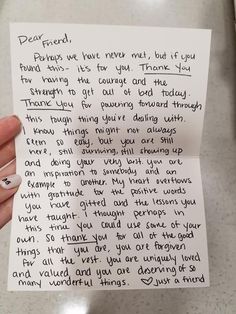 Dear Friend,
Perhaps we have never met, but if you
found this - it's for you. Thank You
for having the courage and the
strength to get out of bed today.
Thank You for powering forward through
this tough thing you're dealing with.
I know things might not always
seem so easy, but you are still
here, still surviving, still showing up
and doing your very best. You are
an inspiration to somebody and an
example to another. My heart overflows
with gratitude for the positive words
you have gifted and the lessons you
have taught. I thought perhaps in
this time you could use some of your
own. So thank you for all of the good
things that you are, you are forgiven
for all the rest. You are uniquely loved
and valued and you are deserving of so
many wonderful things. ♡ just a friend